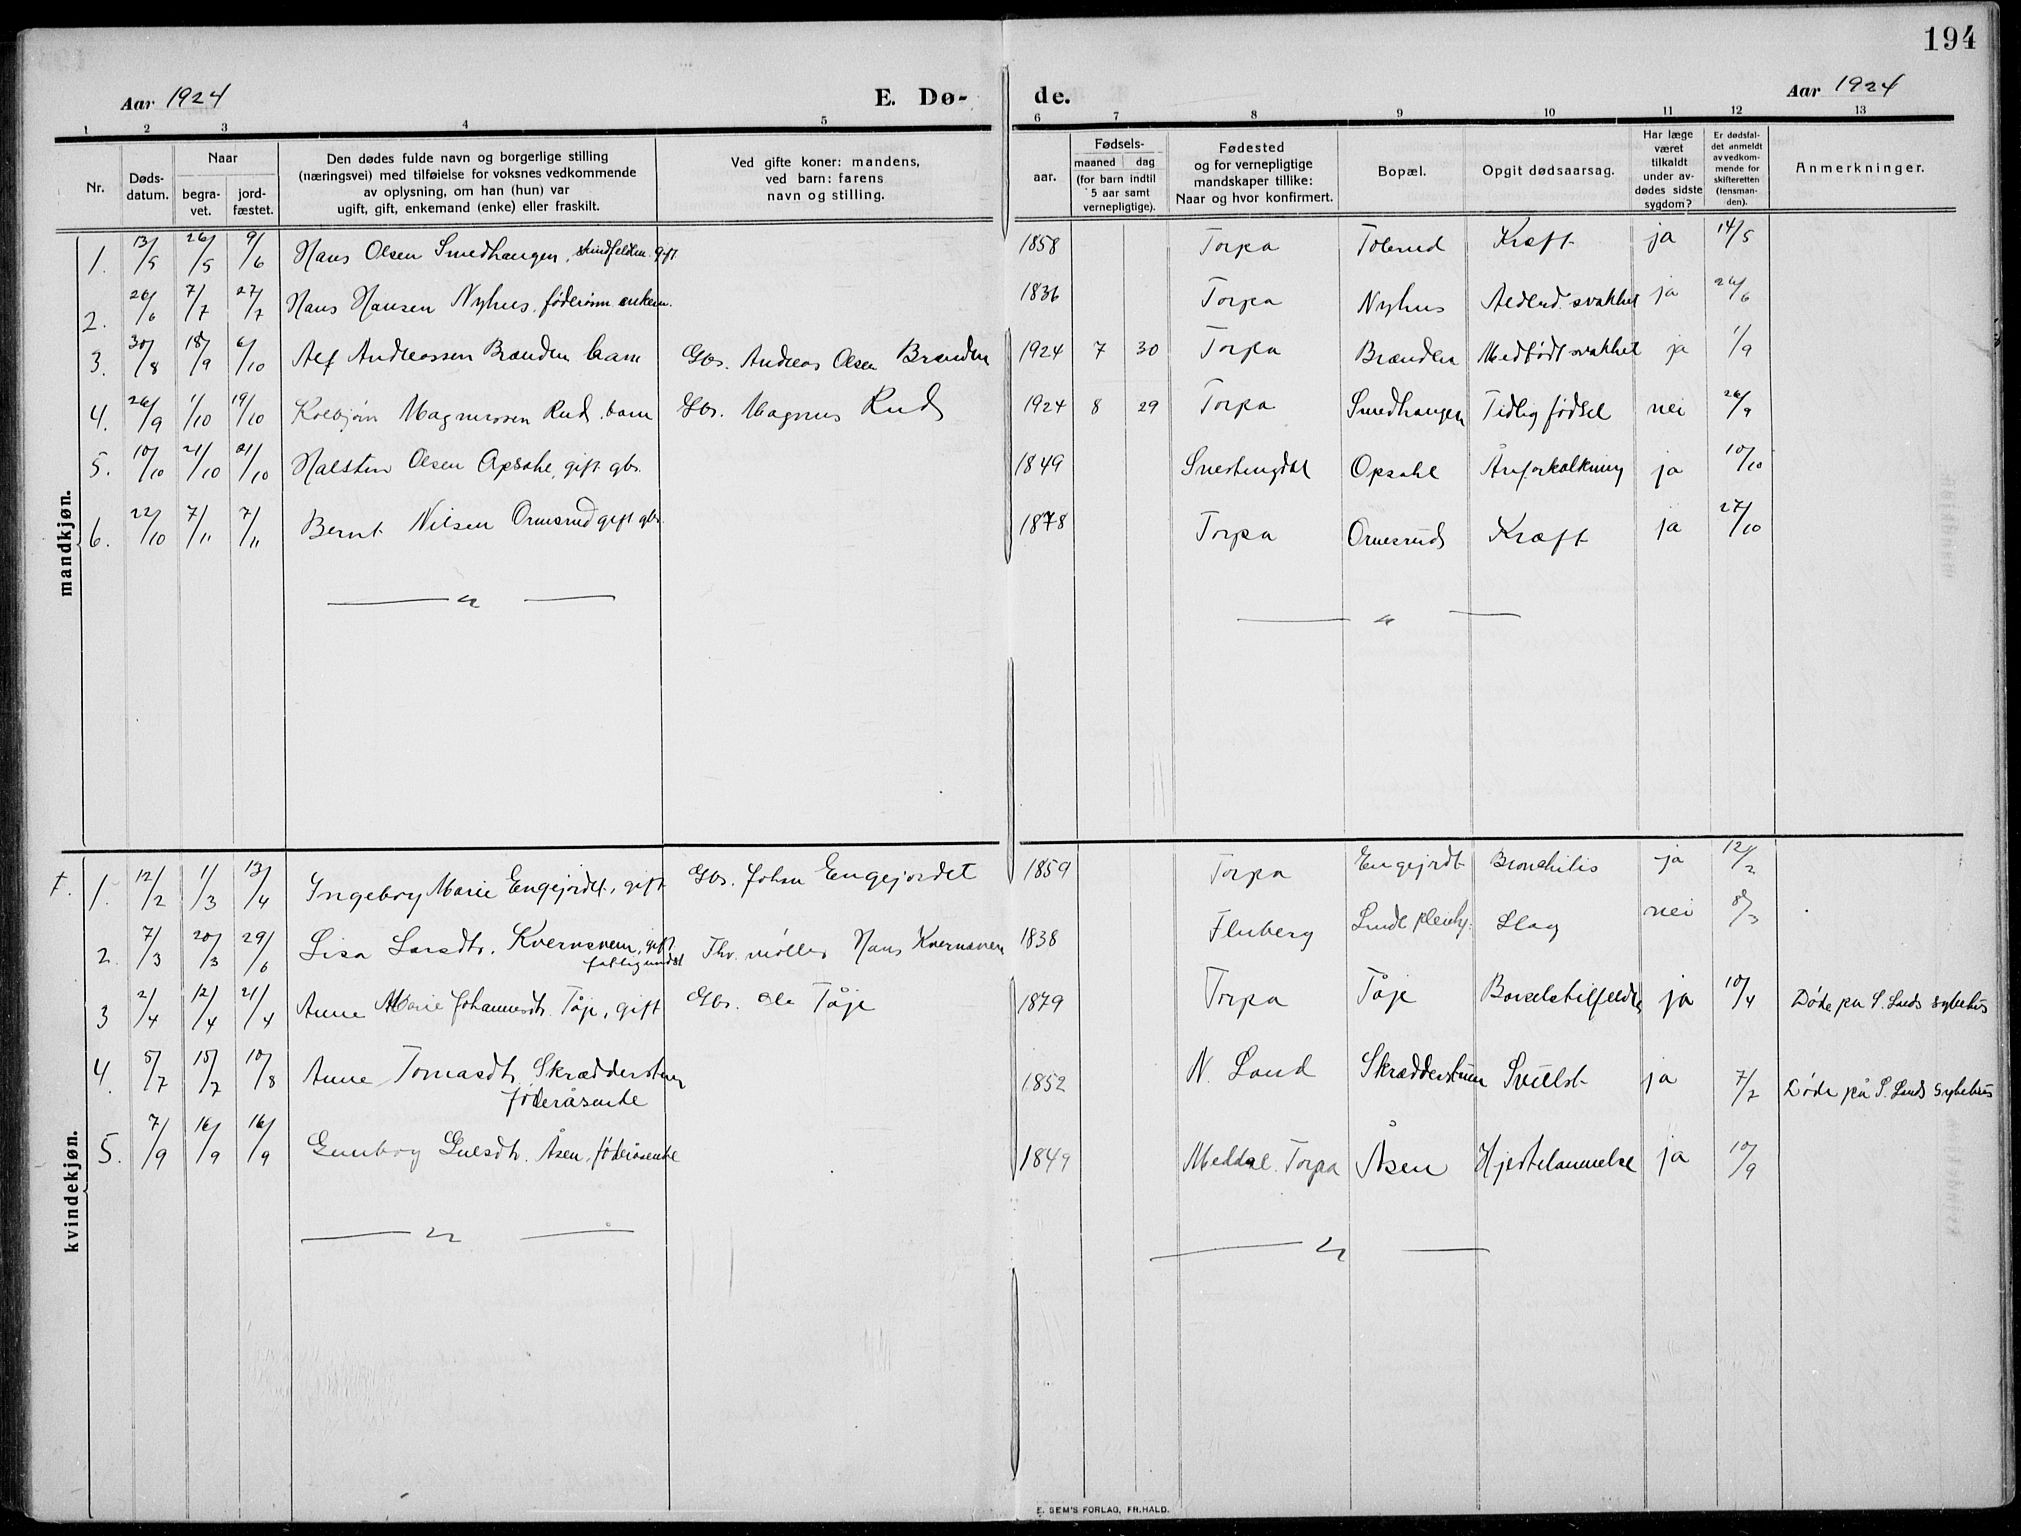 194
Aar 1924 E. Dø- de. Aar 1924
1 2 3 4 5 6 7 8 9 10 11 12 13
Nr.
Døds-
datum.
Naar
begra-
vet.
jord-
fæstet.
Den dødes fulde navn og borgerlige stilling
(næringsvei) med tilføielse for voksnes vedkommende
av oplysning, om han (hun) var
ugift, gift, enkemand (enke) eller fraskilt.
Ved gifte koner: mandens,
ved barn: farens
navn og stilling.
Fødsels-
aar.
maaned dag
(for barn indtil
5 aar samt
vernepligtige).
Fødested
og for vernepligtige
mandskaper tillike:
Naar og hvor konfirmert.
Bopæl.
Opgit dødsaarsag.
Har læge
været
tilkaldt
under av-
dødes sidste
sygdom?
Er dødsfal-
det anmeldt
av vedkom-
mende for
skifteretten
(lensman-
den).
Anmerkninger.
mandkjøn.
1. 13/5 26/5 9/6 Hans Olsen Smedhaugen, gift 1858 Torpa Tolerud Kræft ja 14/5
2. 26/6 7/7 27/7 Hans Hansen Nyhus, føderaam. enkem. 1836 Torpa Nyhus Alderd. svakhet ja 26/6
3. 30/8 18/9 6/10 Alf Andreassen Brænden barn Gbr. Andreas Olsen Brænden 1924 7 30 Torpa Brænden Medfødt svakhet ja 1/9
4. 26/9 1/10 19/10 Kolbjørn Magnussen Rud, barn Gbr. Magnus Rud 1924 8 29 Torpa Smedhaugen Tidlig fødsel nei 26/9
5. 10/10 21/10 21/10 Halsten Olsen Opsahl, gift gbr. 1849 Snertingdal Opsahl Årforkalkning ja 10/10
6. 22/10 7/11 7/11 Bernt Nilsen Ormsrud gift gbr. 1878 Torpa Ormsrud Kræft ja 27/10
— " — — " —
kvindekjøn.
t. 1. 12/2 1/3 13/4 Ingeborg Marie Engejordet, gift Gbr. Johan Engejordet 1859 Torpa Engejordt Bronchitis ja 12/2
2. 7/3 20/3 29/6 Lisa Larsdtr. Kvernsveen, gift Thv. møller Hans Kvernsveen 1838 Fluberg Lunde pleiehj. Slag nei 8/3
fattigunderst
3 2/4 12/4 21/4 Anne Marie Johannesdtr. Tåje, gift Gbr. Ole Tåje 1879 Torpa Tåje Barselstilfelde ja 10/4 Døde på S. Lands sykehus
4. 5/7 15/7 10/8 Anne Tomasdtr. Skrædderstuen 1852 N. Land Skrædderstuen Svulst ja 7/7 Døde på S. Lands sykehus
føderåsenke
5. 7/9 16/9 16/9 Gunborg Gulsdtr. Åsen, føderåsenke 1849 Torpa Åsen Hjertelammelse ja 10/9
— " — — " —
E. SEM'S FORLAG, FR.HALD.